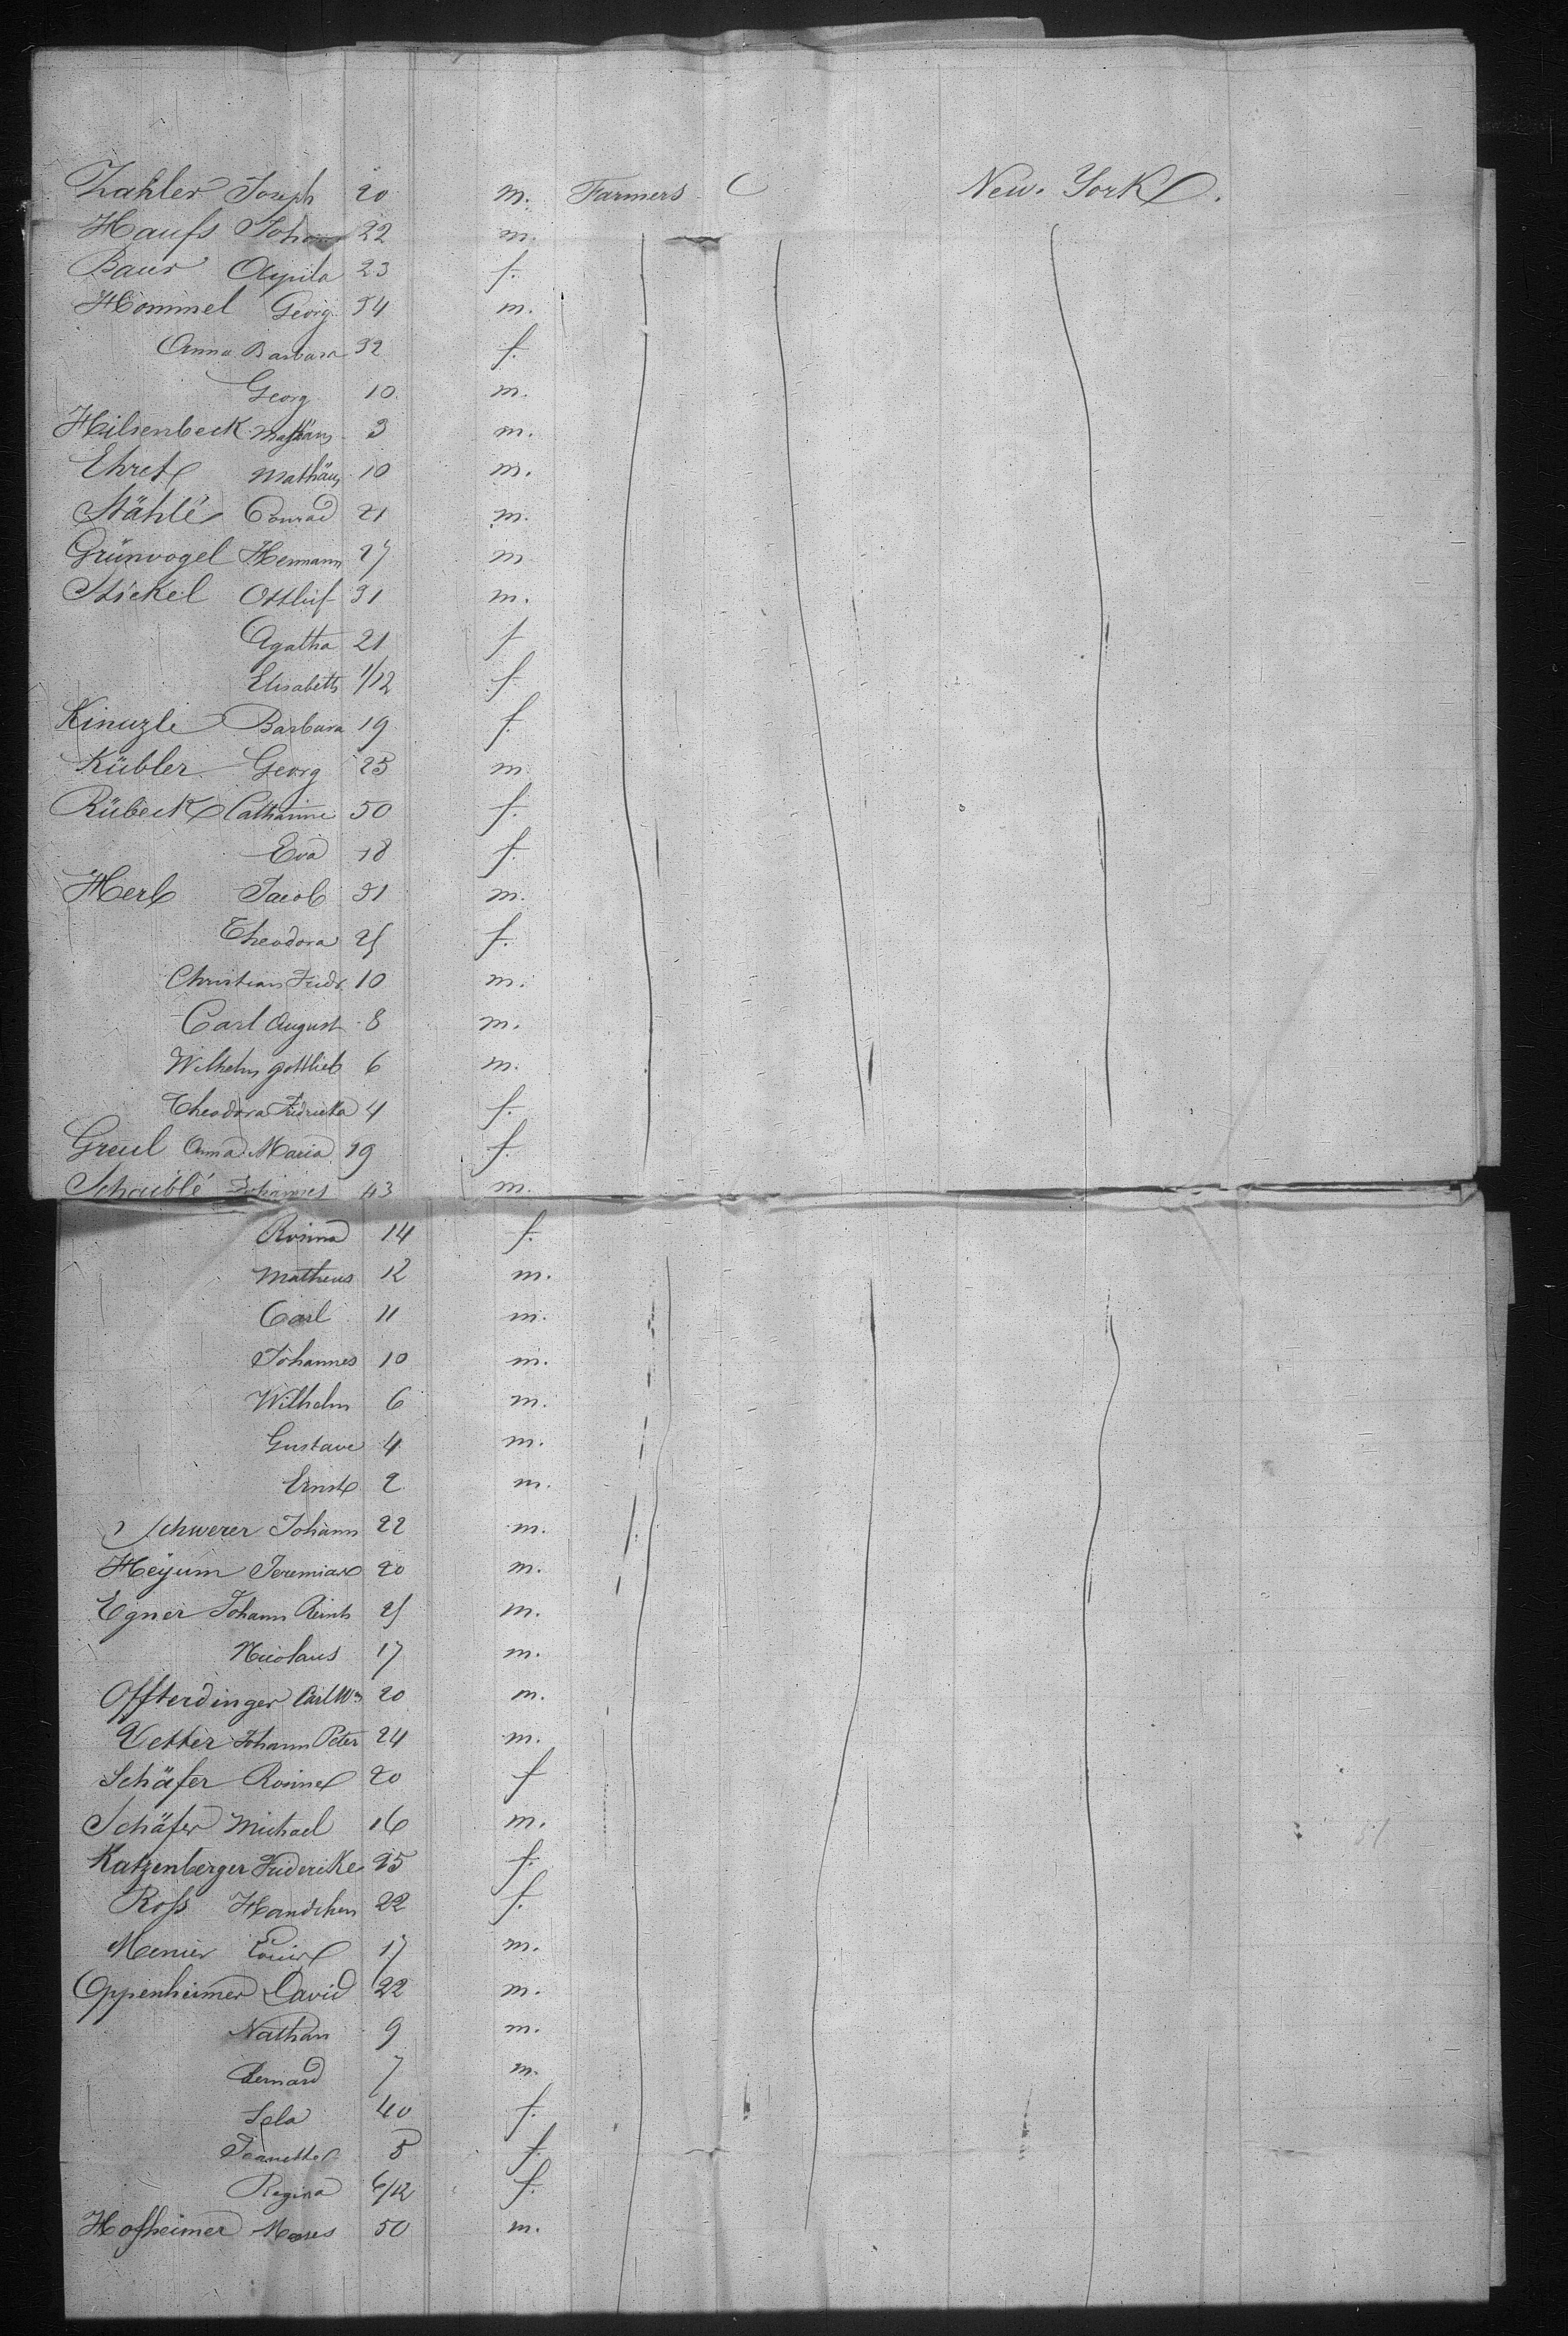 Zahler Joseph 20 m. Farmers C New. York.
Haufs Johann 22 m.
Baur 23 f.
Hommel Georg 34 m.
Anna Barbara 32 f.
Georg 10 m.
Hilsenbeck Mathäus 3 m.
Ehret Mathäus 10 m.
Stähle Conrad 21 m.
Grünvogel Hermann 27 m
Stickel 31 m.
Agatha 21 f
Elisabeth 1/12 f
Kinuzle Barbara 19 f.
Kübler Georg 25 m
Rübeck Catharine 50 f.
Eva 18 f.
Herb Jacob 31 m.
Theodora 25 f.
Christian Fridr. 10 m.
Carl August 8 m.
Wilhelm Gottlieb 6 m.
Theodora Fridricka 4 f.
Greul Anna Maria 19 f.
Schaüble Johannes 43 m.
Rosina 14 f.
Matheus 12 m.
Carl 11 m.
Johannes 10 m.
Wilhelm 6 m.
Gustave 4 m.
Ernst 2 m.
Schwerer Johann 22 m.
Heyum Jeremias 20 m.
Egner Johann 25 m.
Nicolaus 17 m.
Offterdinger Carl Wm 20 m.
Vetter Johann Peter 24 m.
Schäfer Rosine 20 f
Schäfer Michael 16 m.
Katzenberger Friderike 25 f.
Rofs Handchen 22 f.
Menier Louis 17 m.
Oppenheimer David 22 m.
Nathan 9 m.
Bernard 7 m.
40 f.
Jeanette 5 f.
Regina 6/12 f.
Hofheimer Moses 50 m.